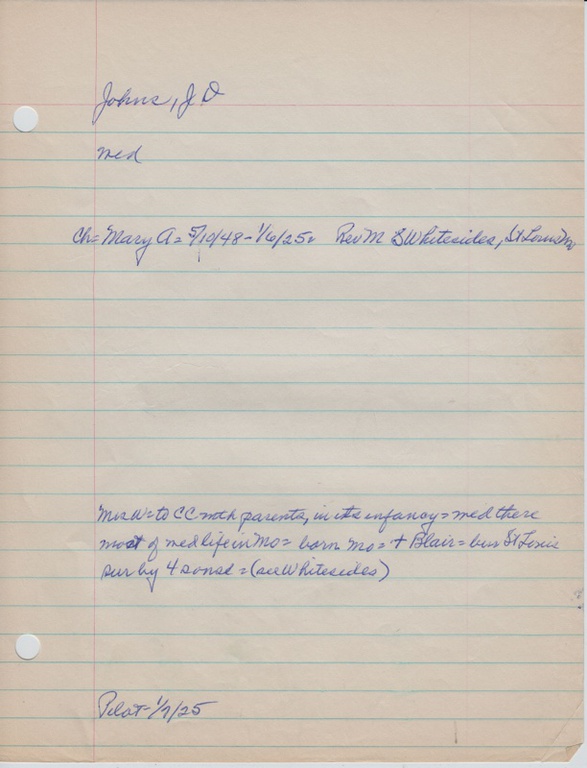 Johns, J D
med
Ch = Mary A = 5/10/48 - 1/6/25 = Rev M B Whitesides, St Louis Mo
Mrs W = to CC with parents, in its infancy = med there
most of med life in Mo = born Mo = + Blair = bur St Louis
sur by 4 sons = (see Whitesides)
Pilot - 1/7/25